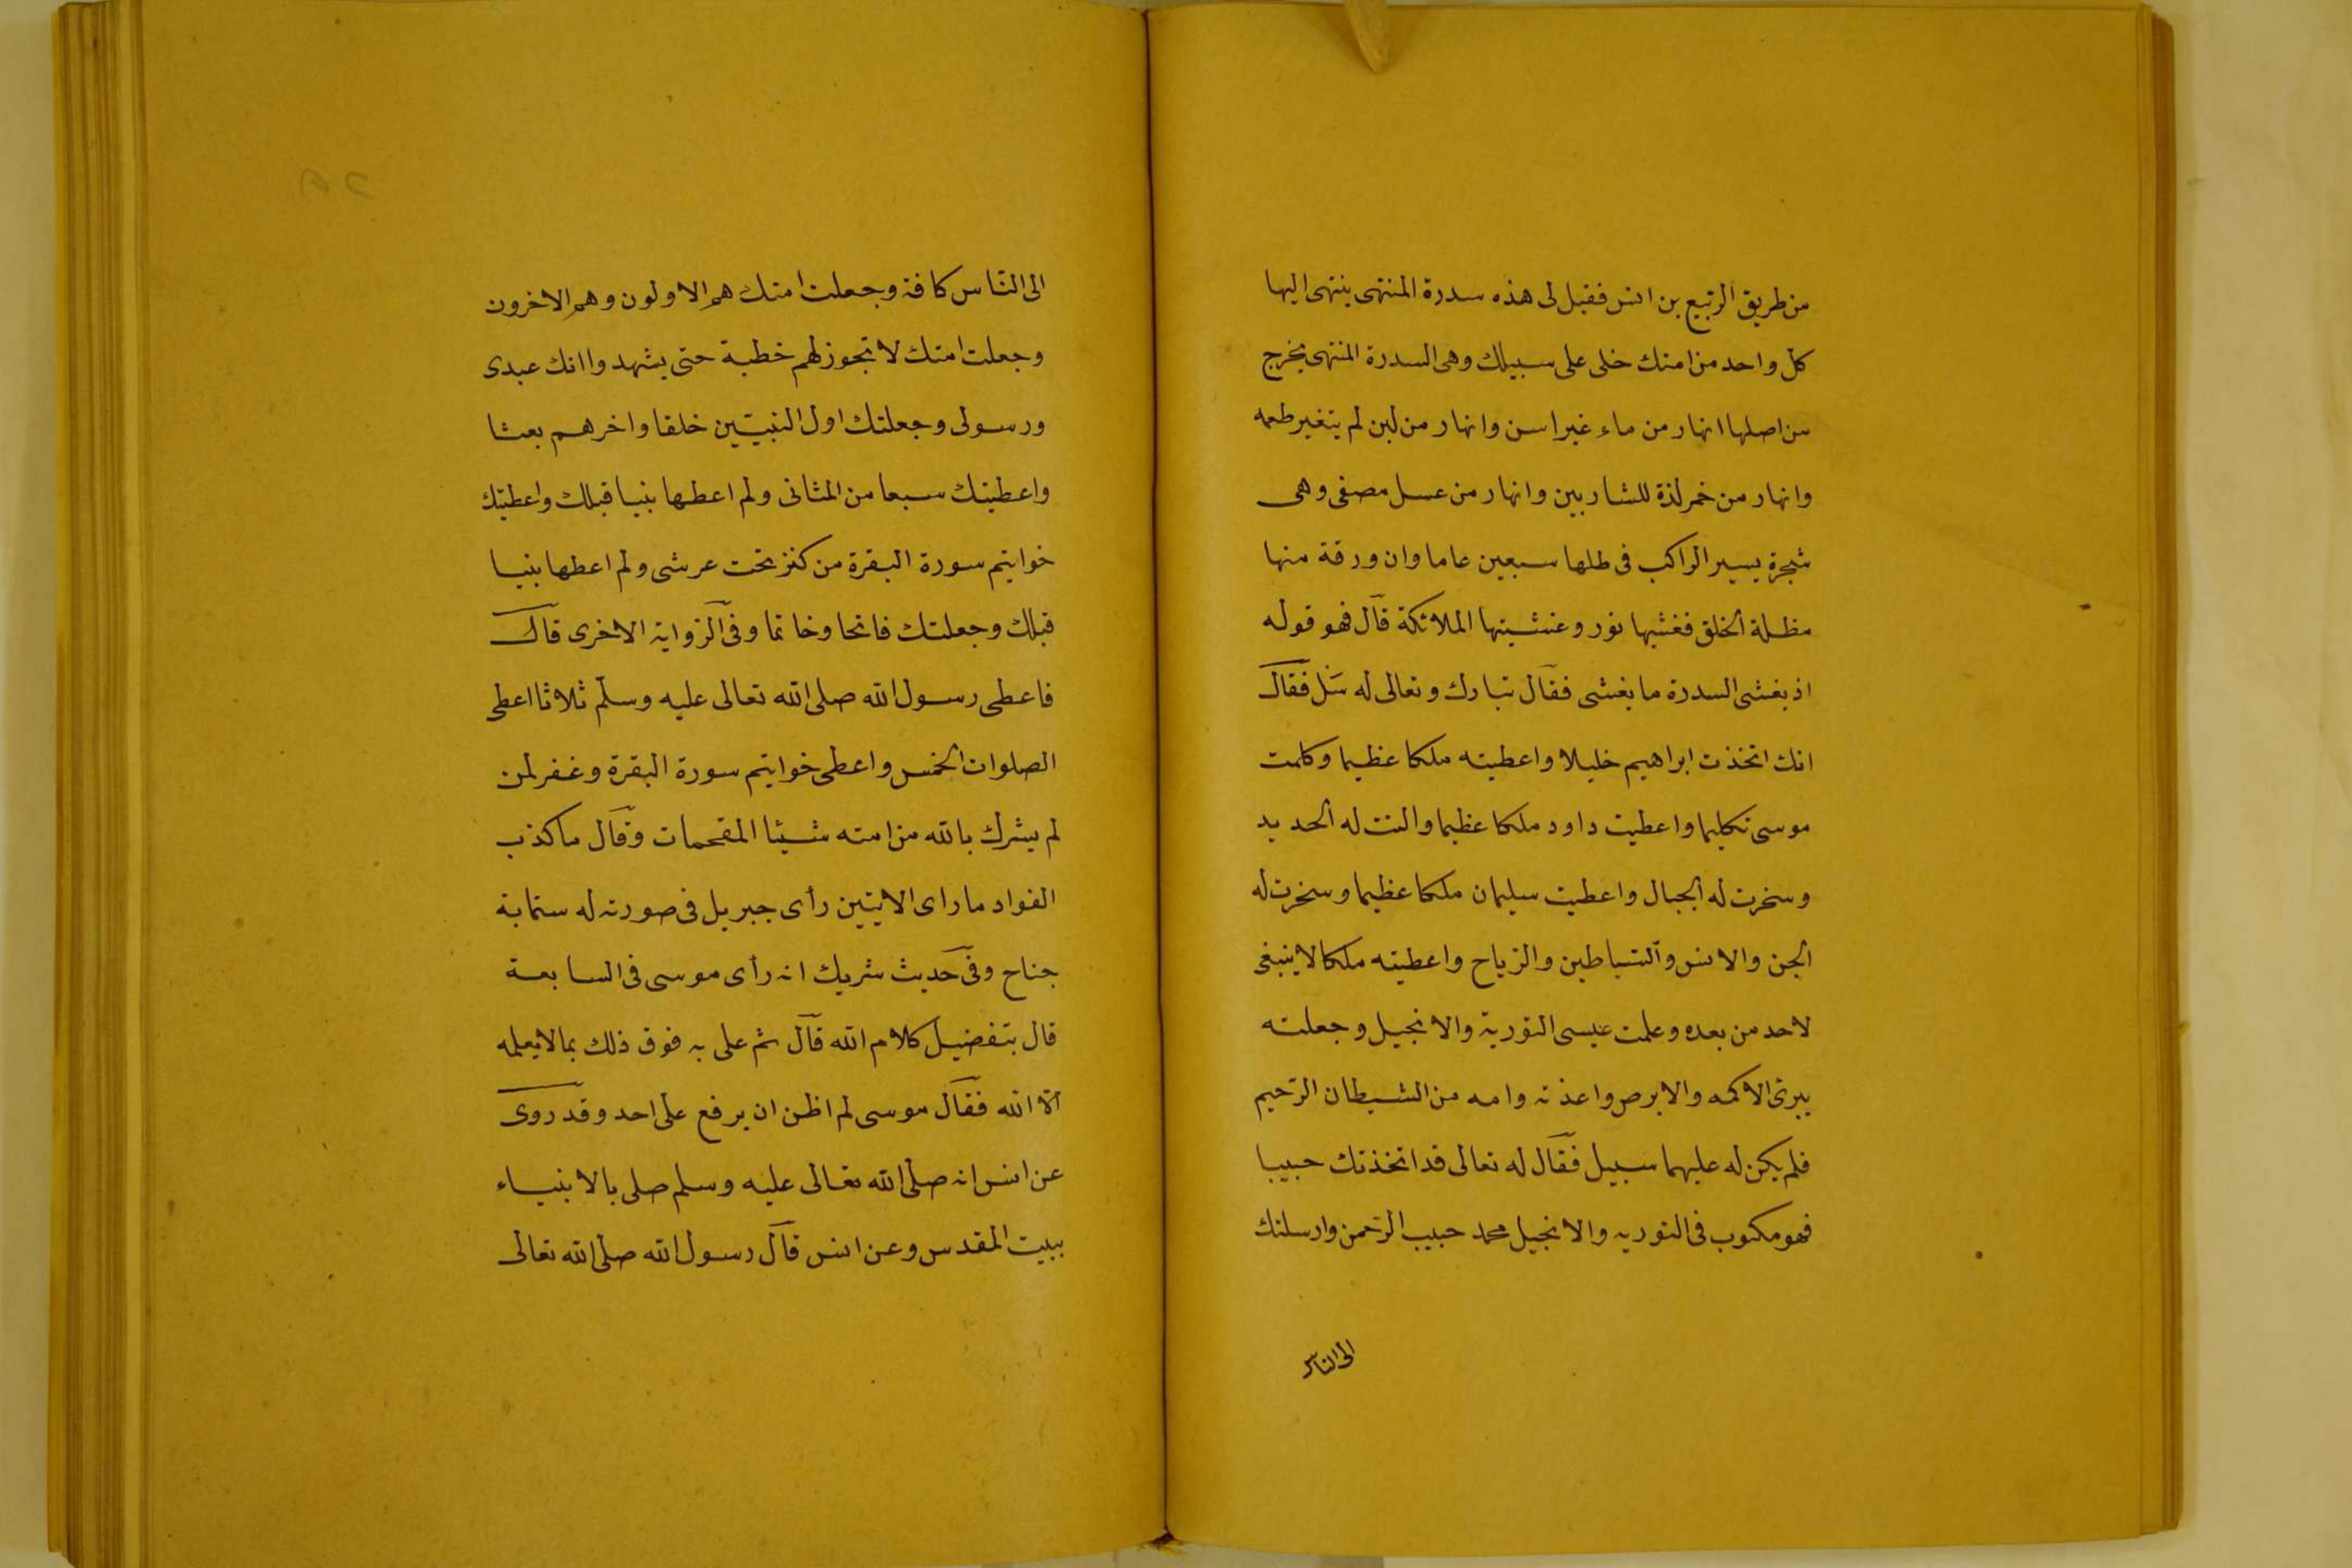 من طريق الربيع بن انس فقيل لى هذه سدرة المنتهى ينتهى اليها
كل واحد من امتك خلى على سبيلك وهى السدرة المنتهى يخرج
من اصلها انهار من ماء غير اسن وانهار من لبن لم يتغير طعمه
وانهار من خمر لذة للشاربين وانهار من عسل مصفى وهى
شجرة يسير الراكب فى ظلها سبعين عاما وان ورقة منها
مظلة الخلق فغشيها نور وغشيتها الملائكة قال فهو قوله
اذ يغشى السدرة ما يغشى فقال تبارك وتعالى له سل فقال
انك اتخذت ابراهيم خليلا واعطيته ملكا عظيما وكلمت
موسى تكليما واعطيت داود ملكا عظيما والنت له الحديد
وسخرت له الجبال واعطيت سليمان ملكا عظيما وسخرت له
الجن والانس والشياطين والرياح واعطيته ملكا لا ينبغى
لاحد من بعده وعلمت عيسى التورية والانجيل وجعلته
يبرئ الاكمه والابرص واعذته وامه من الشيطان الرجيم
فلم يكن له عليهما سبيل فقال له تعالى قد اتخذتك حبيبا
فهو مكتوب فى التوريه والانجيل محمد حبيب الرحمن وارسلتك
الى الناس
الى الناس كافة وجعلت امتك هم الاولون وهم الاخرون
وجعلت امتك لا تجوز لهم خطبة حتى يشهدوا انك عبدى
ورسولى وجعلتك اول النبيين خلقا واخرهم بعثا
واعطيتك سبعا من المثانى ولم اعطها نبيا قبلك واعطيتك
خواتيم سورة البقرة من كنز تحت عرشى ولم اعطها نبيا
قبلك وجعلتك فاتحا وخاتما وفى الرواية الاخرى قال
فاعطى رسول الله صلى الله تعالى عليه وسلم ثلاثا اعطى
الصلوات الخمس واعطى خواتيم سورة البقرة وغفر لمن
لم يشرك بالله من امته شيئا المقحمات وقال ما كذب
الفواد ما راى الايتين رأى جبريل فى صورته له ستماية
جناح وفى حديث شريك انه رأى موسى فى السابعة
قال بتفضيل كلام الله قال ثم على به فوق ذلك بما لا يعلمه
الا الله فقال موسى لم اظن ان يرفع على احد وقد روى
عن انس انه صلى الله تعالى عليه وسلم صلى بالانبياء
ببيت المقدس وعن انس قال رسول الله صلى الله تعالى